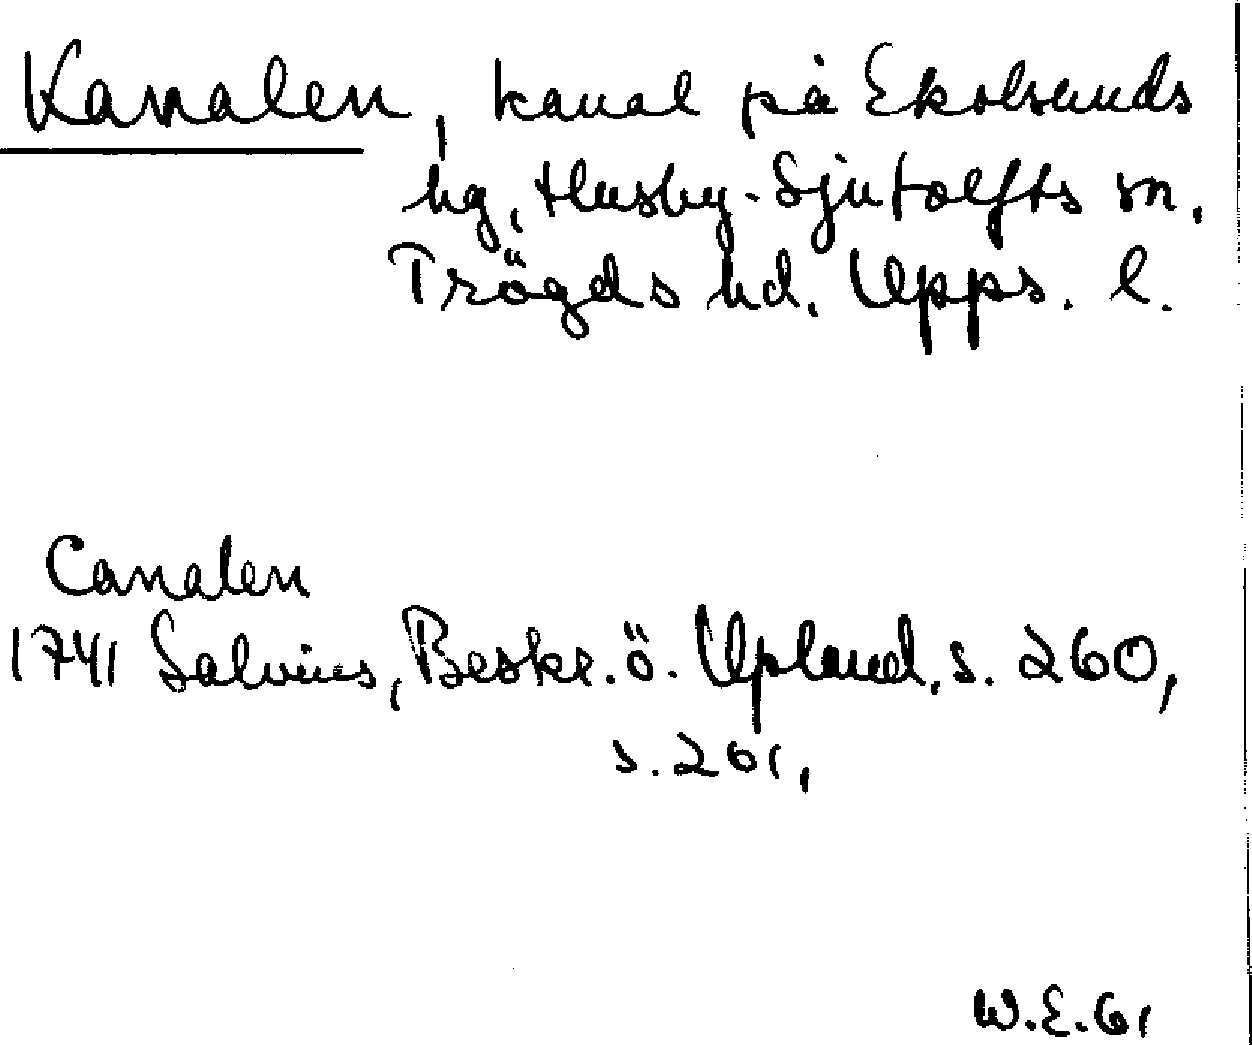 Kanalen, kanal på Ekolsunds
hg, Husby-Sjutolfts sn,
Trögds hd. Upps. l.
Canalen
1741 Salvius, Beskr. ö. Upland, s. 260,
s. 261,
W.E. 61